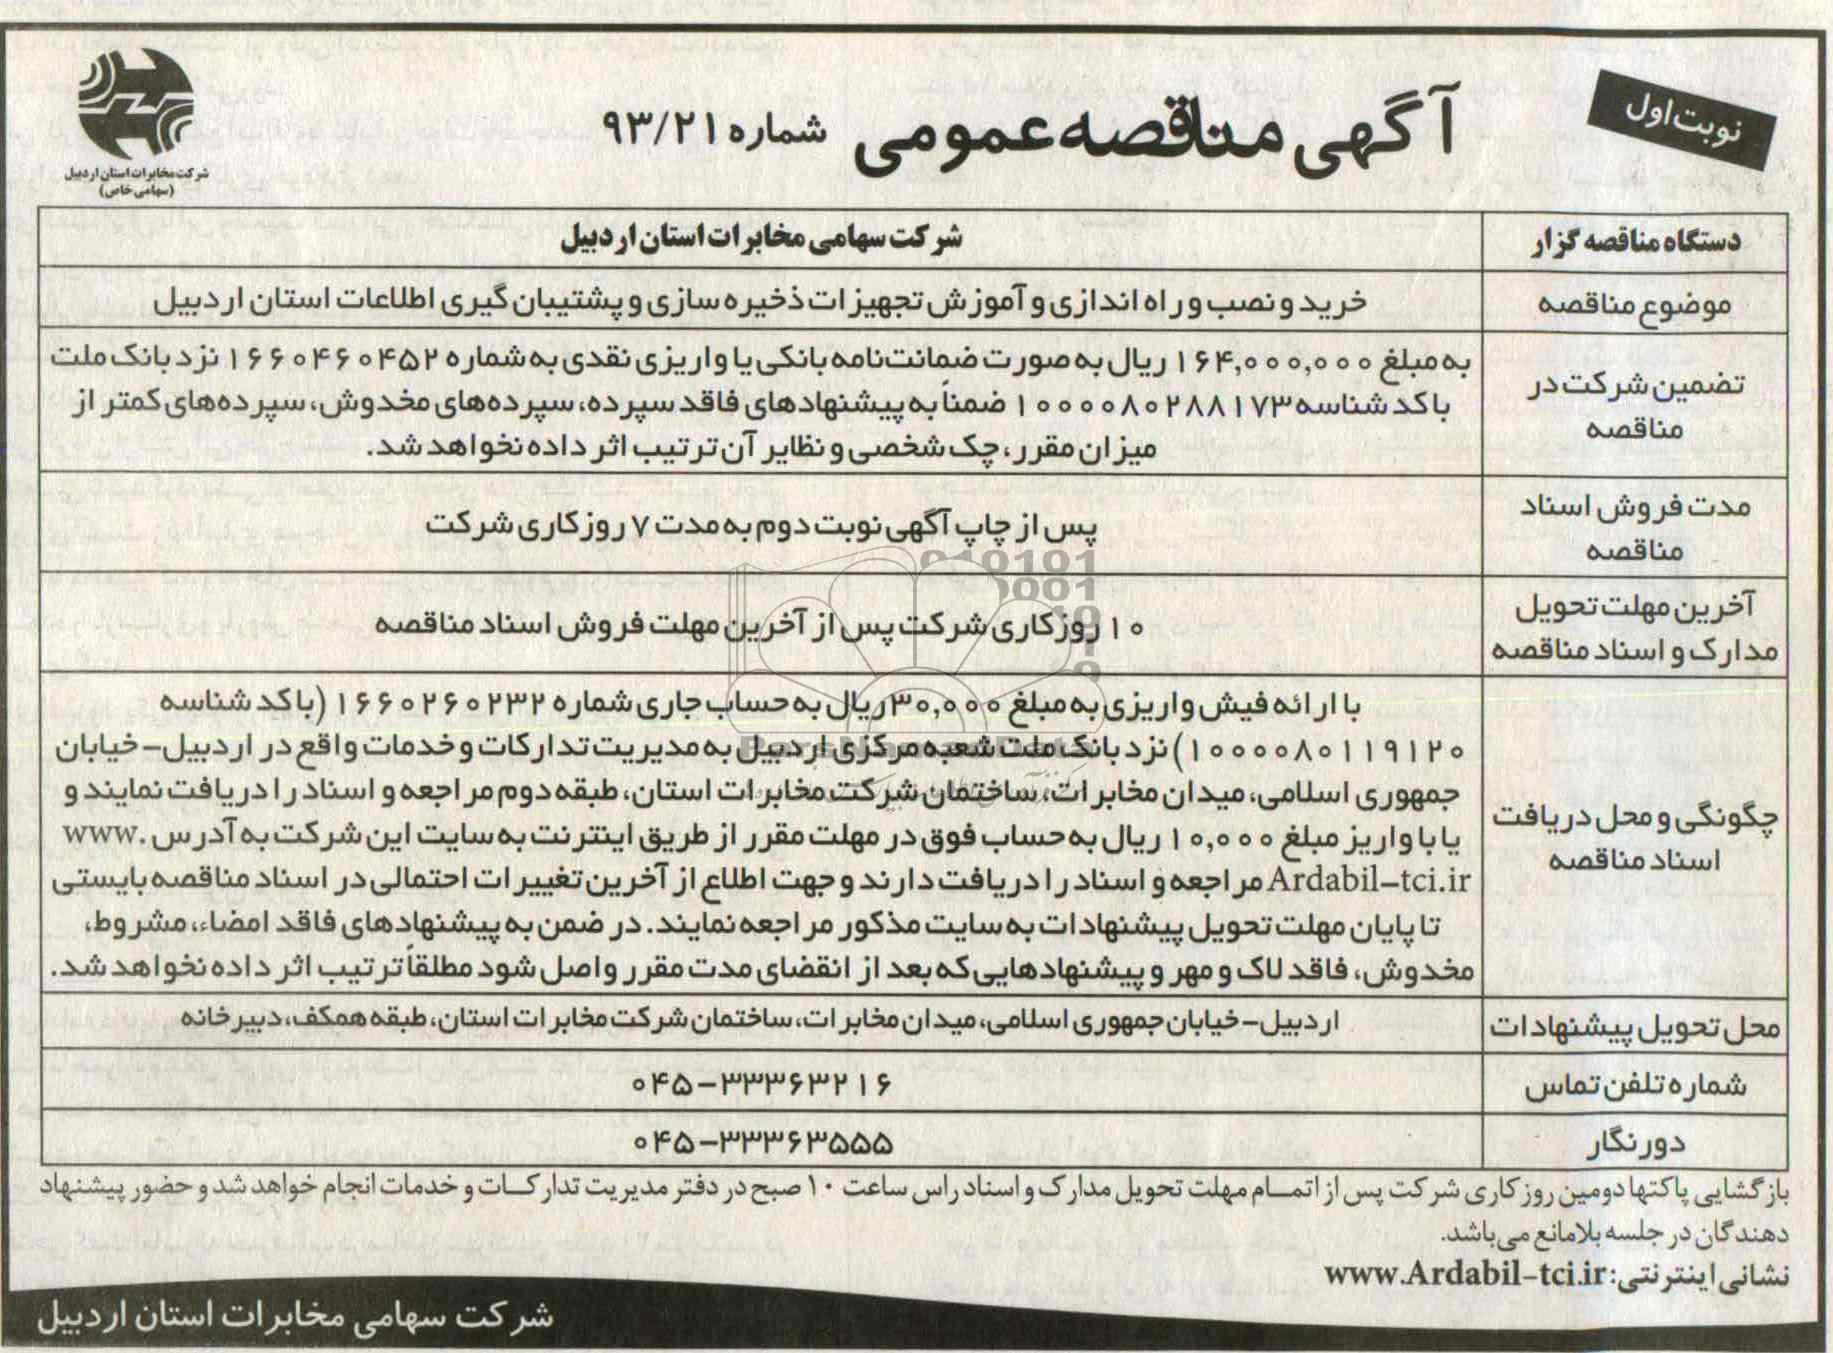 نوبت اول
آگهی مناقصه عمومی شماره ۹۳/۲۱
شرکت مخابرات استان اردبیل
(سهامی خاص)
دستگاه مناقصه گزار
شرکت سهامی مخابرات استان اردبیل
موضوع مناقصه
خرید و نصب و راه اندازی و آموزش تجهیزات ذخیره سازی و پشتیبان گیری اطلاعات استان اردبیل
تضمین شرکت در
مناقصه
به مبلغ ۱۶۴,۰۰۰,۰۰۰ ریال به صورت ضمانت‌نامه بانکی یا واریزی نقدی به شماره ۱۶۶۰۴۶۰۴۵۲ نزد بانک ملت
با کد شناسه ۱۰۰۰۰۸۰۲۸۸۱۷۳ ضمناً به پیشنهادهای فاقد سپرده، سپرده‌های مخدوش، سپرده‌های کمتر از
میزان مقرر، چک شخصی و نظایر آن ترتیب اثر داده نخواهد شد.
مدت فروش اسناد
مناقصه
پس از چاپ آگهی نوبت دوم به مدت ۷ روز کاری شرکت
آخرین مهلت تحویل
مدارک و اسناد مناقصه
۱۰ روز کاری شرکت پس از آخرین مهلت فروش اسناد مناقصه
چگونگی و محل دریافت
اسناد مناقصه
با ارائه فیش واریزی به مبلغ ۳۰,۰۰۰ ریال به حساب جاری شماره ۱۶۶۰۲۶۰۲۳۲ (با کد شناسه
۱۰۰۰۰۸۰۱۱۹۱۲۰) نزد بانک ملت شعبه مرکزی اردبیل به مدیریت تدارکات و خدمات واقع در اردبیل–خیابان
جمهوری اسلامی، میدان مخابرات، ساختمان شرکت مخابرات استان، طبقه دوم مراجعه و اسناد را دریافت نمایند و
یا با واریز مبلغ ۱۰,۰۰۰ ریال به حساب فوق در مهلت مقرر از طریق اینترنت به سایت این شرکت به آدرس www.
Ardabil–tci.ir مراجعه و اسناد را دریافت دارند و جهت اطلاع از آخرین تغییرات احتمالی در اسناد مناقصه بایستی
تا پایان مهلت تحویل پیشنهادات به سایت مذکور مراجعه نمایند. در ضمن به پیشنهادهای فاقد امضاء، مشروط،
مخدوش، فاقد لاک و مهر و پیشنهادهایی که بعد از انقضای مدت مقرر واصل شود مطلقاً ترتیب اثر داده نخواهد شد.
محل تحویل پیشنهادات
اردبیل–خیابان جمهوری اسلامی، میدان مخابرات، ساختمان شرکت مخابرات استان، طبقه همکف، دبیرخانه
شماره تلفن تماس
۰۴۵–۳۳۳۶۳۲۱۶
دورنگار
۰۴۵–۳۳۳۶۳۵۵۵
بازگشایی پاکتها دومین روز کاری شرکت پس از اتمام مهلت تحویل مدارک و اسناد راس ساعت ۱۰ صبح در دفتر مدیریت تدارکات و خدمات انجام خواهد شد و حضور پیشنهاد
دهندگان در جلسه بلامانع می‌باشد.
نشانی اینترنتی: www.Ardabil–tci.ir
شرکت سهامی مخابرات استان اردبیل